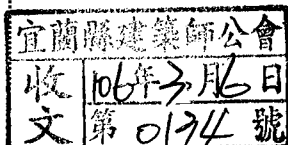 宜蘭縣建築師公會
收文
106年3月6日
第0134號